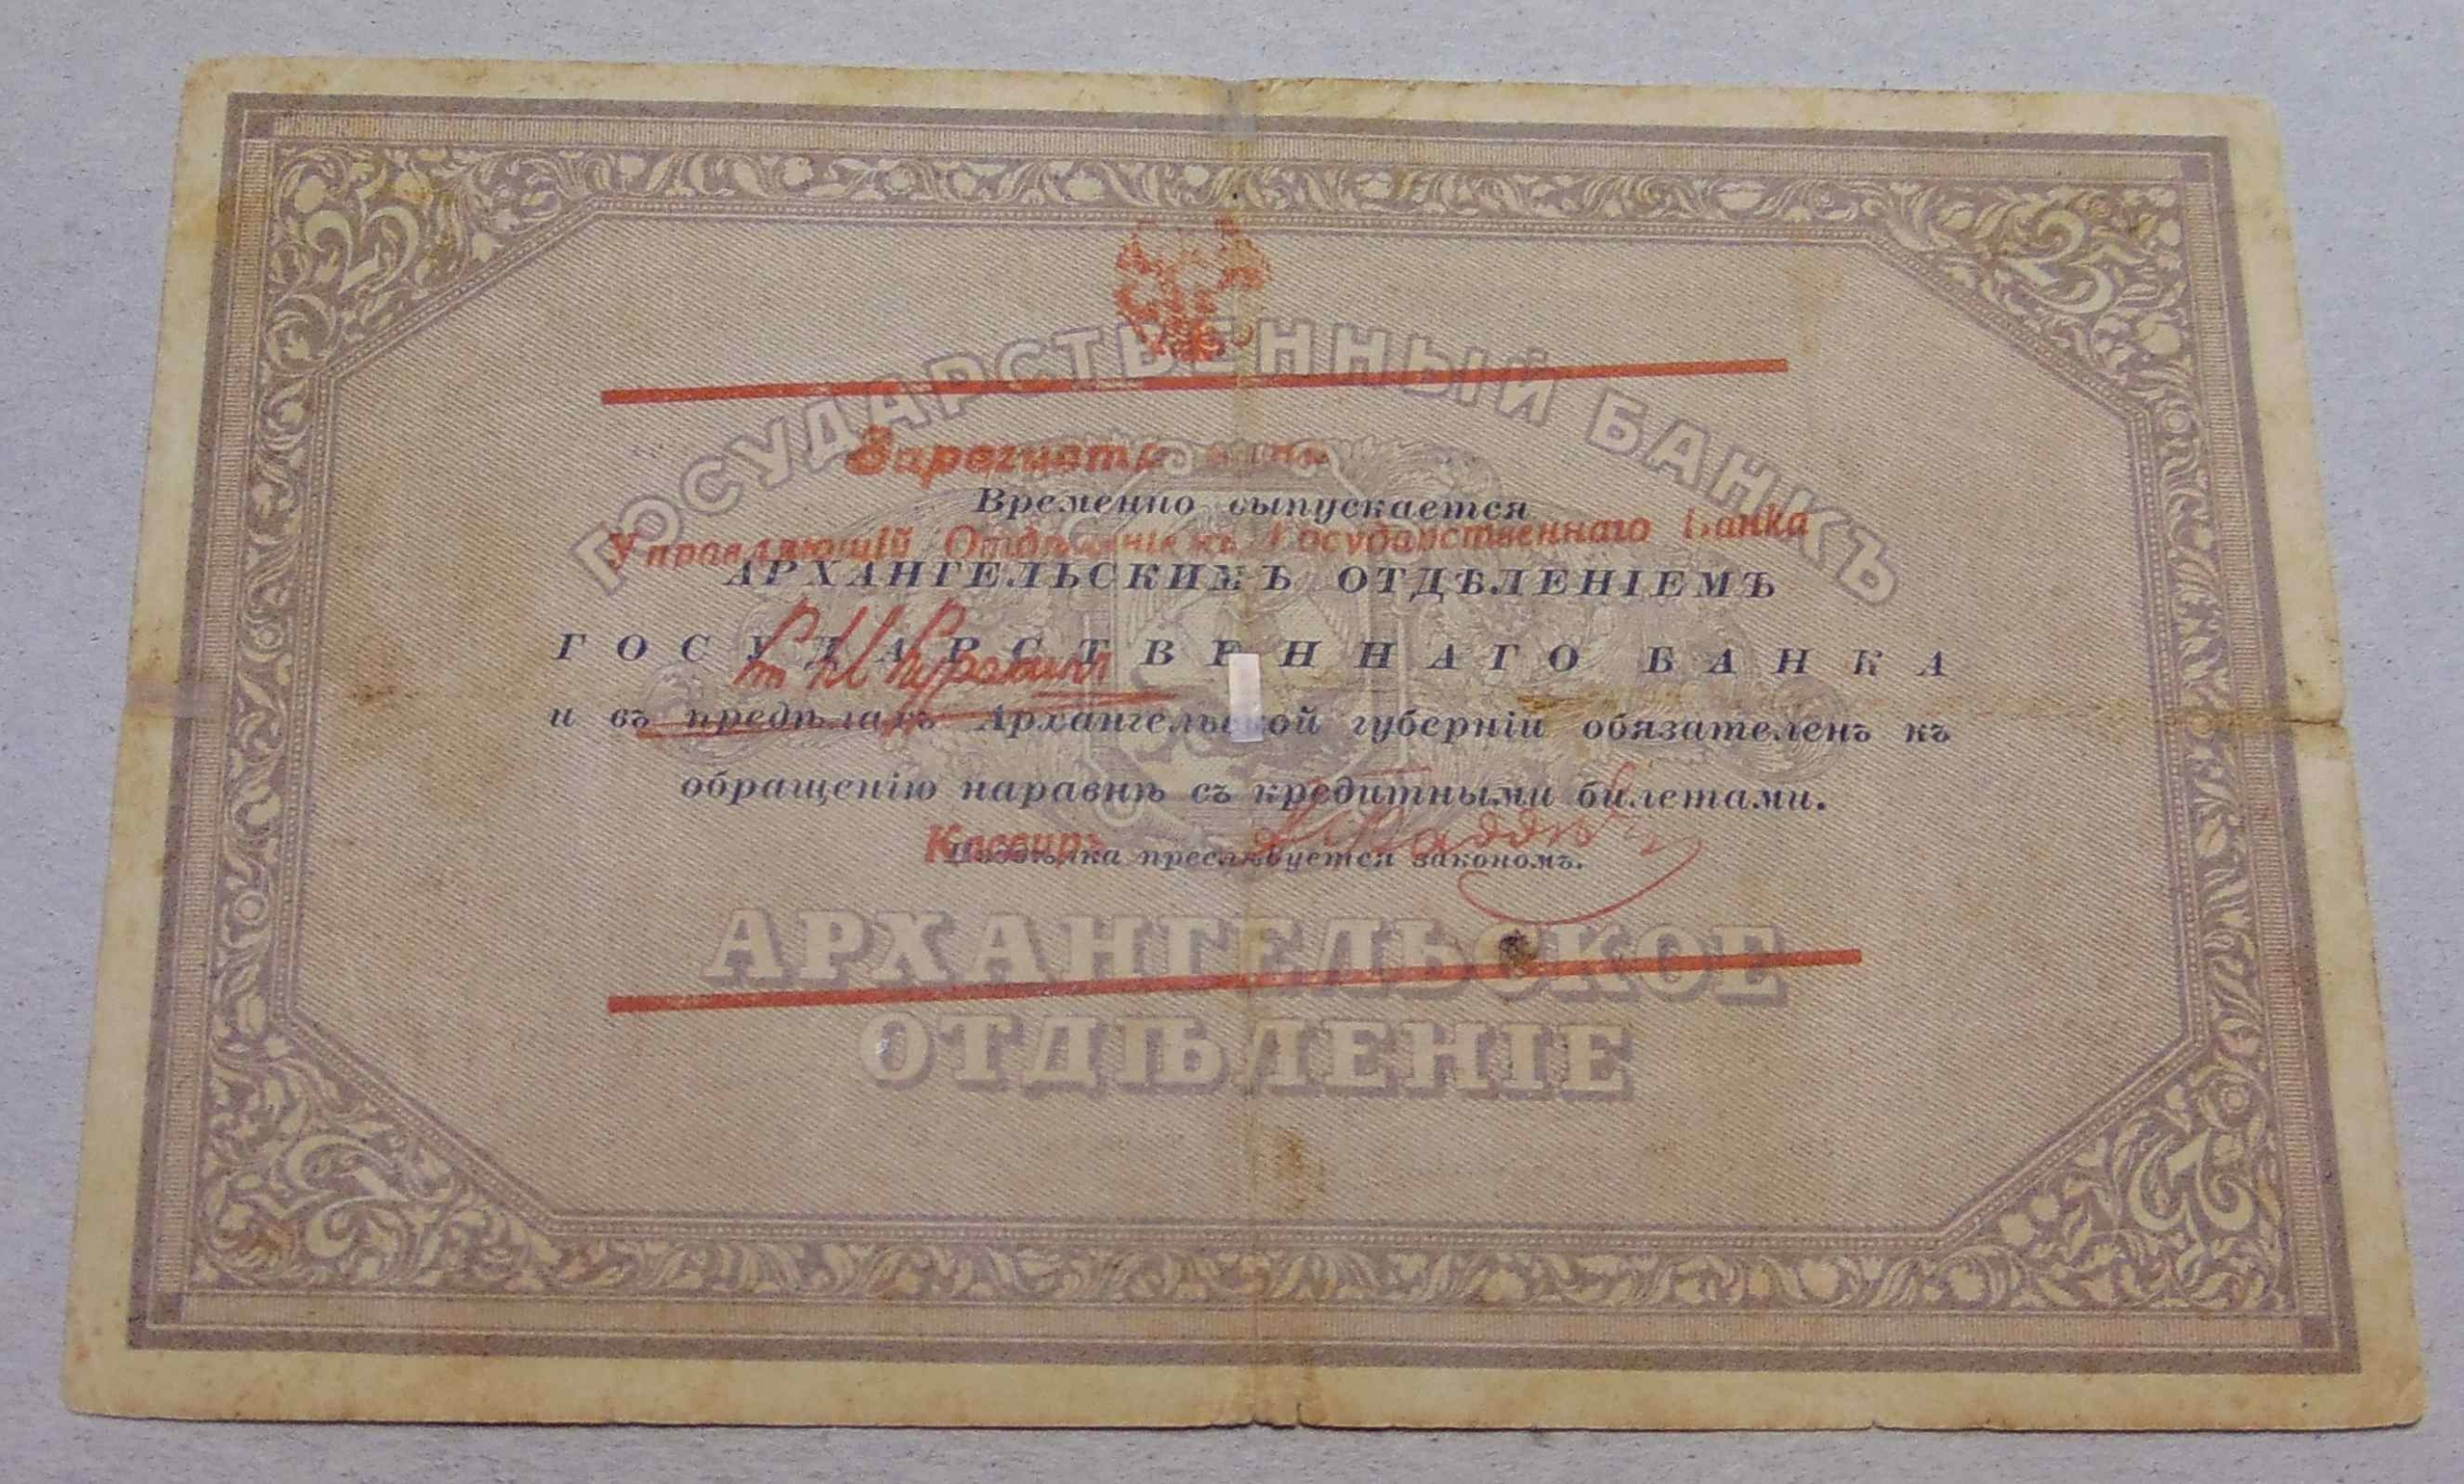 25 25
ГОСУДАРСТВЕННЫЙ БАНКЪ
Зарегистрованъ
Временно выпускается
Управляющій Отдѣленіемъ Государственнаго Банка
АРХАНГЕЛЬСКИМЪ ОТДѢЛЕНІЕМЪ
ГОСУДАРСТВЕННАГО БАНКА
и въ предѣлахъ Архангельской губерніи обязателенъ къ
обращенію наравнѣ съ кредитными билетами.
Кассиръ
Поддѣлка преслѣдуется закономъ.
АРХАНГЕЛЬСКОЕ
ОТДѢЛЕНІЕ
25 25